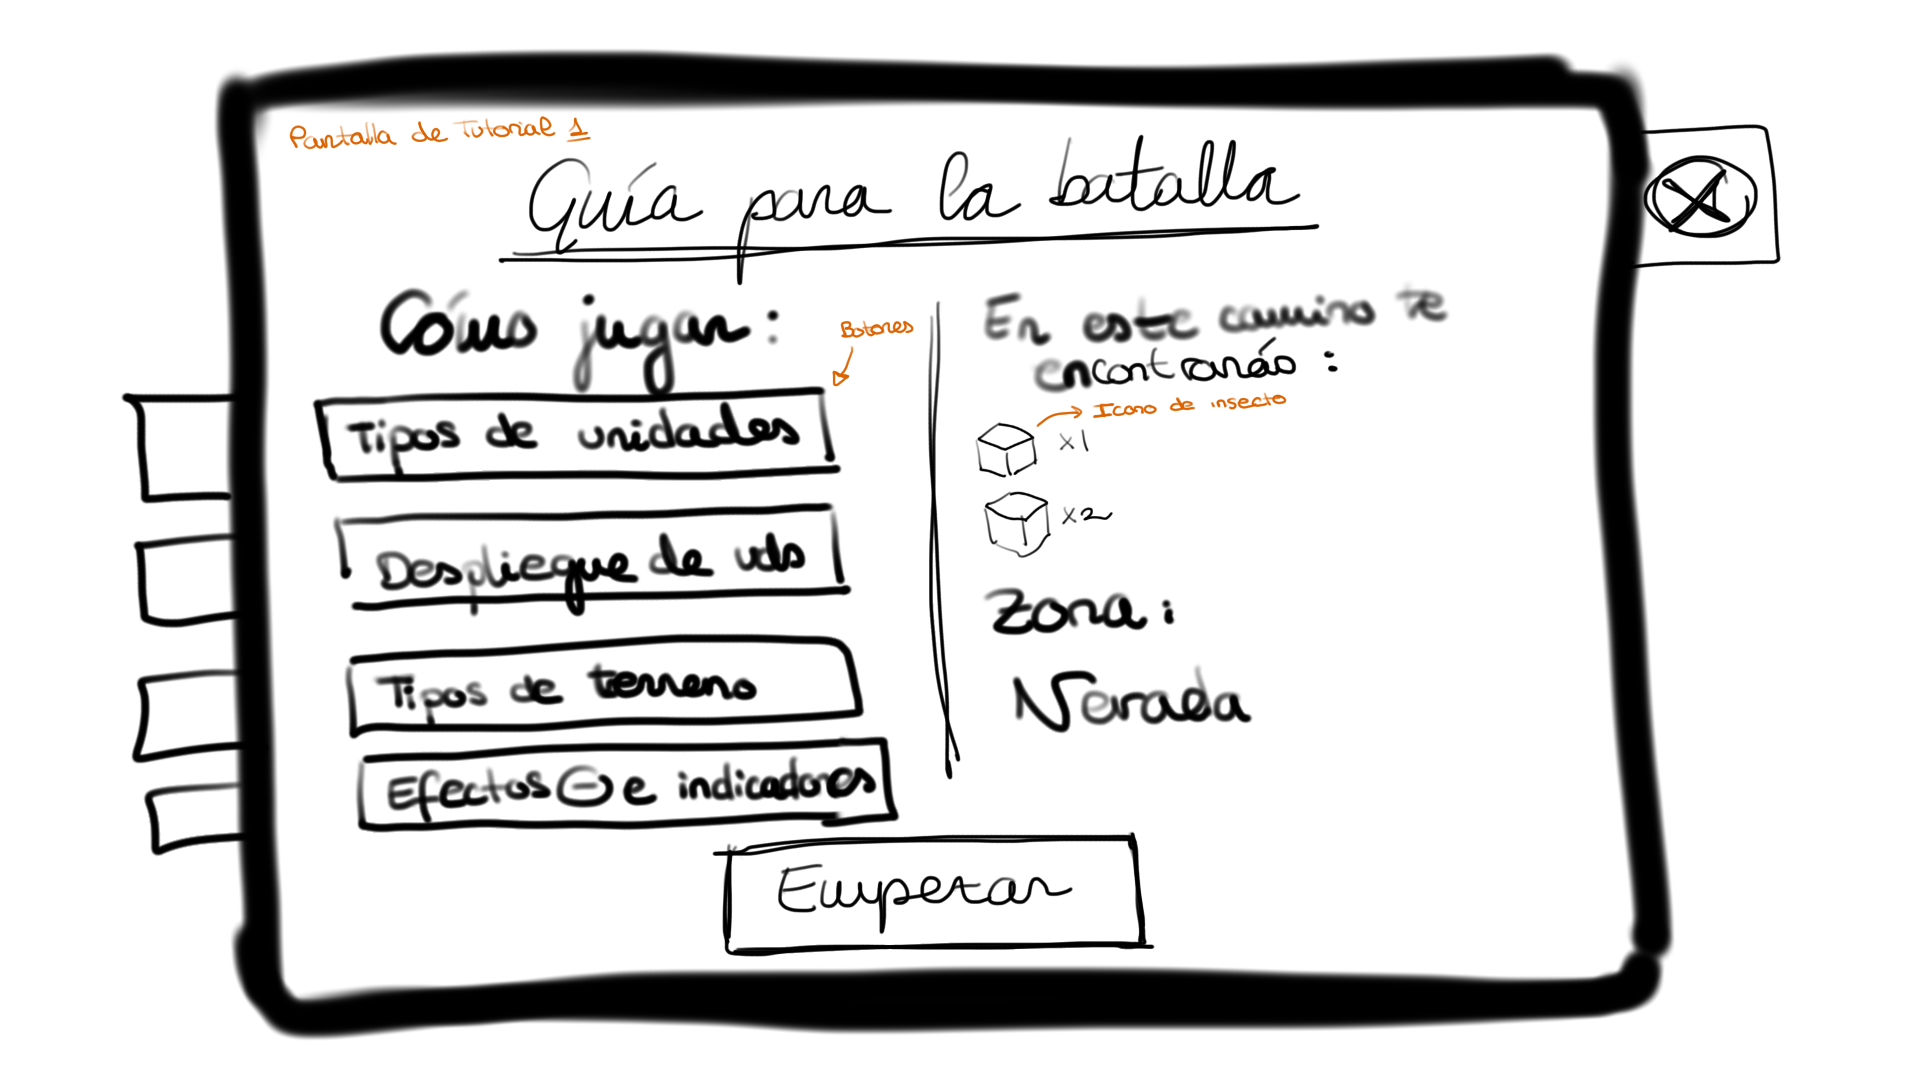 Pantalla de Tutorial 1
Guía para la batalla
Cómo jugar:
Botones
Tipos de unidades
Despliegue de uds
Tipos de terreno
Efectos e indicadores
En este camino te
encontrarás:
Icono de insecto
x1
x2
Zona:
Nevada
Empezar